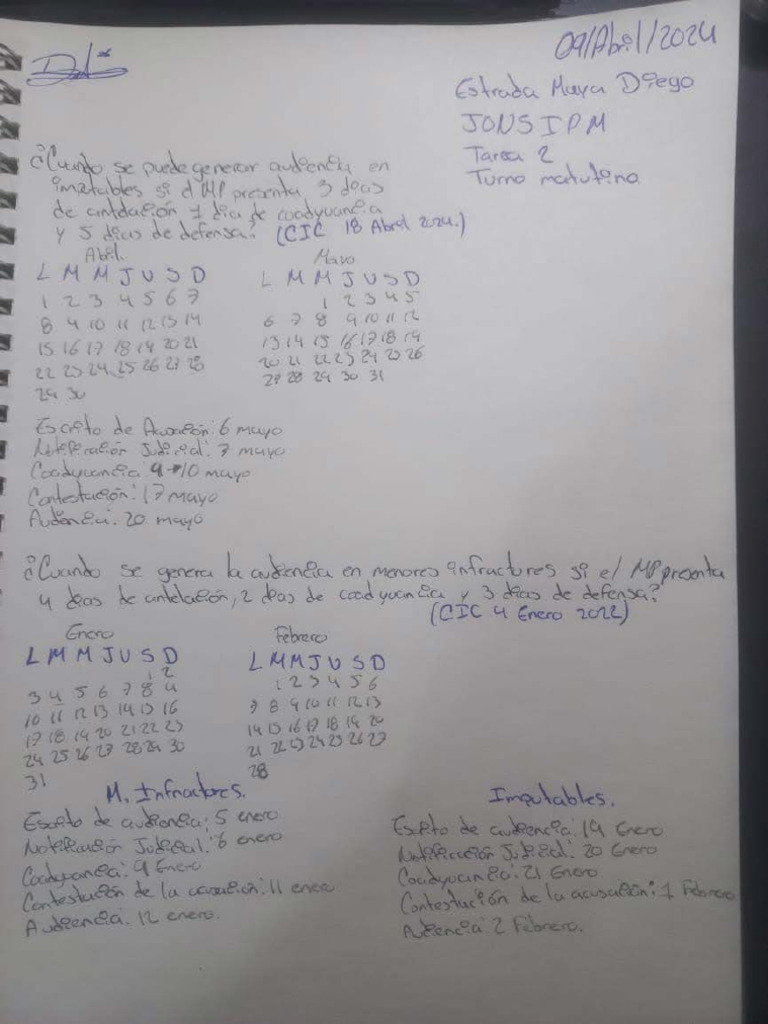 09/Abril/2024
Estrada Maya Diego
JONSIPM
Tarea 2
Turno matutino
¿Cuando se puede generar audiencia en
imputables si el MP presenta 3 dias
de antelación 1 dia de coadyuvancia
y 5 dias de defensa? (CIC 18 Abril 2024.)
Abril. Mayo
L M M J V S D L M M J V S D
1 2 3 4 5 6 7 1 2 3 4 5
8 9 10 11 12 13 14 6 7 8 9 10 11 12
15 16 17 18 19 20 21 13 14 15 16 17 18 19
22 23 24 25 26 27 28 20 21 22 23 24 25 26
29 30 27 28 29 30 31
Escrito de Acusación: 6 mayo
Notificación Judicial: 7 mayo
Coadyuvancia: 9→10 mayo
Contestación: 17 mayo
Audiencia: 20 mayo
¿Cuando se genera la audiencia en menores infractores si el MP presenta
4 dias de antelación, 2 dias de coadyuvancia y 3 dias de defensa?
(CIC 4 Enero 2022)
Enero Febrero
L M M J V S D L M M J V S D
1 2 1 2 3 4 5 6
3 4 5 6 7 8 9 7 8 9 10 11 12 13
10 11 12 13 14 15 16 14 15 16 17 18 19 20
17 18 19 20 21 22 23 21 22 23 24 25 26 27
24 25 26 27 28 29 30 28
31
M. Infractores. Imputables.
Escrito de audiencia: 5 enero Escrito de audiencia: 19 Enero
Notificación Judicial: 6 enero Notificación Judicial: 20 Enero
Coadyuvancia: 9 Enero Coadyuvancia: 21 Enero
Contestación de la acusación: 11 enero Contestación de la acusación: 1 Febrero
Audiencia: 12 enero. Audiencia: 2 Febrero.